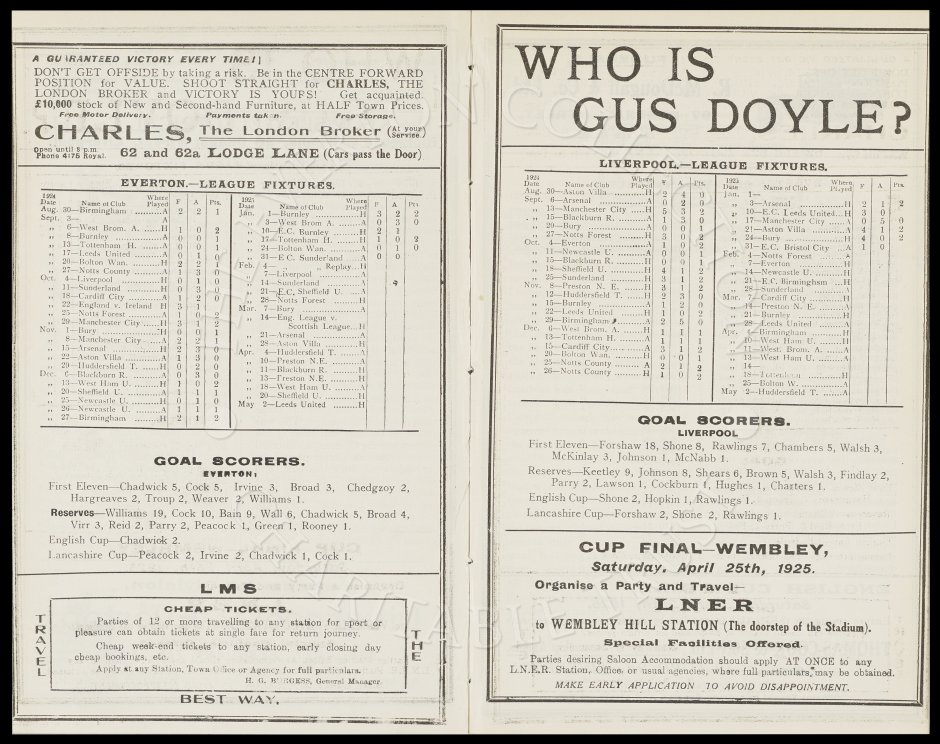 A GUARANTEED VICTORY EVERY TIME!
DON'T GET OFFSIDE by taking a risk. Be in the CENTRE FORWARD
POSITION for VALUE. SHOOT STRAIGHT for CHARLES, THE
LONDON BROKER and VICTORY IS YOURS! Get acquainted.
£10,000 stock of New and Second-hand Furniture, at HALF Town Prices.
Free Motor Delivery. Payments taken. Free Storage.
CHARLES, The London Broker (At your Service.)
Open until 8 p.m.
Phone 4175 Royal. 62 and 62a LODGE LANE (Cars pass the Door)
EVERTON.—LEAGUE FIXTURES.
1924
Date Name of Club Where Played F A Pts.
Aug. 30—Birmingham ..........A 2 2 1
Sept. 3— A
„ 6—West Brom. A. .....H 1 0 2
„ 8—Burnley ...............H 0 0 1
„ 13—Tottenham H. ......A 0 0 1
„ 17—Leeds United ......A 0 1 0
„ 20—Bolton Wan. .......H 2 2 1
„ 27—Notts County ......A 1 3 0
Oct. 4—Liverpool ............H 0 1 0
„ 11—Sunderland .........H 0 3 0
„ 18—Cardiff City .........A 1 2 0
„ 22—England v. Ireland H 3 1
„ 25—Notts Forest ........A 1 0 2
„ 29—Manchester City......H 3 1 2
Nov. 1—Bury ..................H 0 0 1
„ 8—Manchester City......A 2 2 1
„ 15—Arsenal ...............H 2 3 0
„ 22—Aston Villa .........A 1 3 0
„ 29—Huddersfield T. ......H 0 2 0
Dec. 6—Blackburn R. .........A 0 3 0
„ 13—West Ham U. .........H 1 0 2
„ 20—Sheffield U. ..........A 1 1 1
„ 25—Newcastle U. .........H 0 1 0
„ 26—Newcastle U. .........A 1 1 1
„ 27—Birmingham ............H 2 1 2
1925
Date Name of Club Where Played F A Pts.
Jan. 1—Burnley .................H 3 2 2
„ 3—West Brom A. .........A 0 3 0
„ 10—E.C. Burnley .........H 2 1
„ 17—Tottenham H. .........H 1 0 2
„ 24—Bolton Wan. ...........A 0 1 0
„ 31—E.C. Sunderland .....A 0 0
Feb. 4— „ Replay...H
„ 7—Liverpool ..............A
„ 14—Sunderland
„ 21—E.C. Sheffield U. ...A
„ 28—Notts Forest
Mar. 7—Bury ....................A
„ 14—Eng. League v.
Scottish League...H
„ 21—Arsenal .................A
„ 28—Aston Villa ............H
Apr. 4—Huddersfield T. ......A
„ 10—Preston N.E. ..........A
„ 11—Blackburn R. ..........H
„ 13—Preston N.E. ..........H
„ 18—West Ham U. ..........A
„ 20—Sheffield U. ...........H
May 2—Leeds United ...........H
GOAL SCORERS.
EVERTON:
First Eleven—Chadwick 5, Cock 5, Irvine 3, Broad 3, Chedgzoy 2,
Hargreaves 2, Troup 2, Weaver 2, Williams 1.
Reserves—Williams 19, Cock 10, Bain 9, Wall 6, Chadwick 5, Broad 4,
Virr 3, Reid 2, Parry 2, Peacock 1, Green 1, Rooney 1.
English Cup—Chadwick 2.
Lancashire Cup—Peacock 2, Irvine 2, Chadwick 1, Cock 1.
LMS
TRAVEL
CHEAP TICKETS.
Parties of 12 or more travelling to any station for sport or
pleasure can obtain tickets at single fare for return journey.
Cheap week-end tickets to any station, early closing day
cheap bookings, etc.
Apply at any Station, Town Office or Agency for full particulars.
H. G. BURGESS, General Manager.
THE
BEST WAY.
WHO IS
GUS DOYLE?
LIVERPOOL.—LEAGUE FIXTURES.
1924
Date Name of Club Where Played F A Pts.
Aug. 30—Aston Villa ...........H 2 4 0
Sept. 6—Arsenal .................H 0 2
„ 13—Manchester City .....H 5 3 2
„ 15—Blackburn R. .........A 1 3 0
„ 20—Bury .....................A 0 0 1
„ 27—Notts Forest ..........H 3 0 2
Oct. 4—Everton .................A 1 0 2
„ 11—Newcastle U. ..........A 0 0 1
„ 15—Blackburn R. .........H 0 0 1
„ 18—Sheffield U. ...........H 4 1 2
„ 25—Sunderland ............H 3 1 2
Nov. 8—Preston N. E. .........H 3 1 2
„ 12—Huddersfield T. .......H 2 3 0
„ 15—Burnley .................A 1 2 0
„ 22—Leeds United ..........H 1 0 2
„ 29—Birmingham ............A 2 5 0
Dec. 6—West Brom. A. ........H 1 1 1
„ 13—Tottenham H. .........A 1 1 1
„ 15—Cardiff City............A 3 1 2
„ 20—Bolton Wan. ...........H 0 0 1
„ 25—Notts County .........A 2 1 2
„ 26—Notts County .........H 1 0 2
1925
Date Name of Club Where Played F A Pts.
Jan. 1—
„ 3—Arsenal .................H 2 1 2
„ 10—E.C. Leeds United...H 3 0
„ 17—Manchester City .....A 0 5 0
„ 21—Aston Villa ...........A 4 1 2
„ 24—Bury .....................H 4 0 2
„ 31—E.C. Bristol City ...A 1 0
Feb. 4—Notts Forest ..........A
„ 7—Everton .................H
„ 14—Newcastle U. ..........H
„ 21—E.C. Birmingham ...H
„ 28—Sunderland
Mar. 7—Cardiff City ............H
„ 14—Preston N. E. .........A
„ 21—Burnley .................H
„ 28—Leeds United ..........A
Apr. 4—Birmingham ............H
„ 10—West Ham U. .........H
„ 11—West. Brom. A. .......A
„ 13—West Ham U. .........A
„ 14—
„ 18—Tottenham .............H
„ 25—Bolton W. ..............A
May 2—Huddersfield T. .......A
GOAL SCORERS.
LIVERPOOL
First Eleven—Forshaw 18, Shone 8, Rawlings 7, Chambers 5, Walsh 3,
McKinlay 3, Johnson 1, McNabb 1.
Reserves—Keetley 9, Johnson 8, Shears 6, Brown 5, Walsh 3, Findlay 2,
Parry 2, Lawson 1, Cockburn 1, Hughes 1, Charters 1.
English Cup—Shone 2, Hopkin 1, Rawlings 1.
Lancashire Cup—Forshaw 2, Shone 2, Rawlings 1.
CUP FINAL—WEMBLEY,
Saturday, April 25th, 1925.
Organise a Party and Travel—
LNER
to WEMBLEY HILL STATION (The doorstep of the Stadium).
Special Facilities Offered.
Parties desiring Saloon Accommodation should apply AT ONCE to any
L.N.E.R. Station, Office, or usual agencies, where full particulars may be obtained.
MAKE EARLY APPLICATION TO AVOID DISAPPOINTMENT.